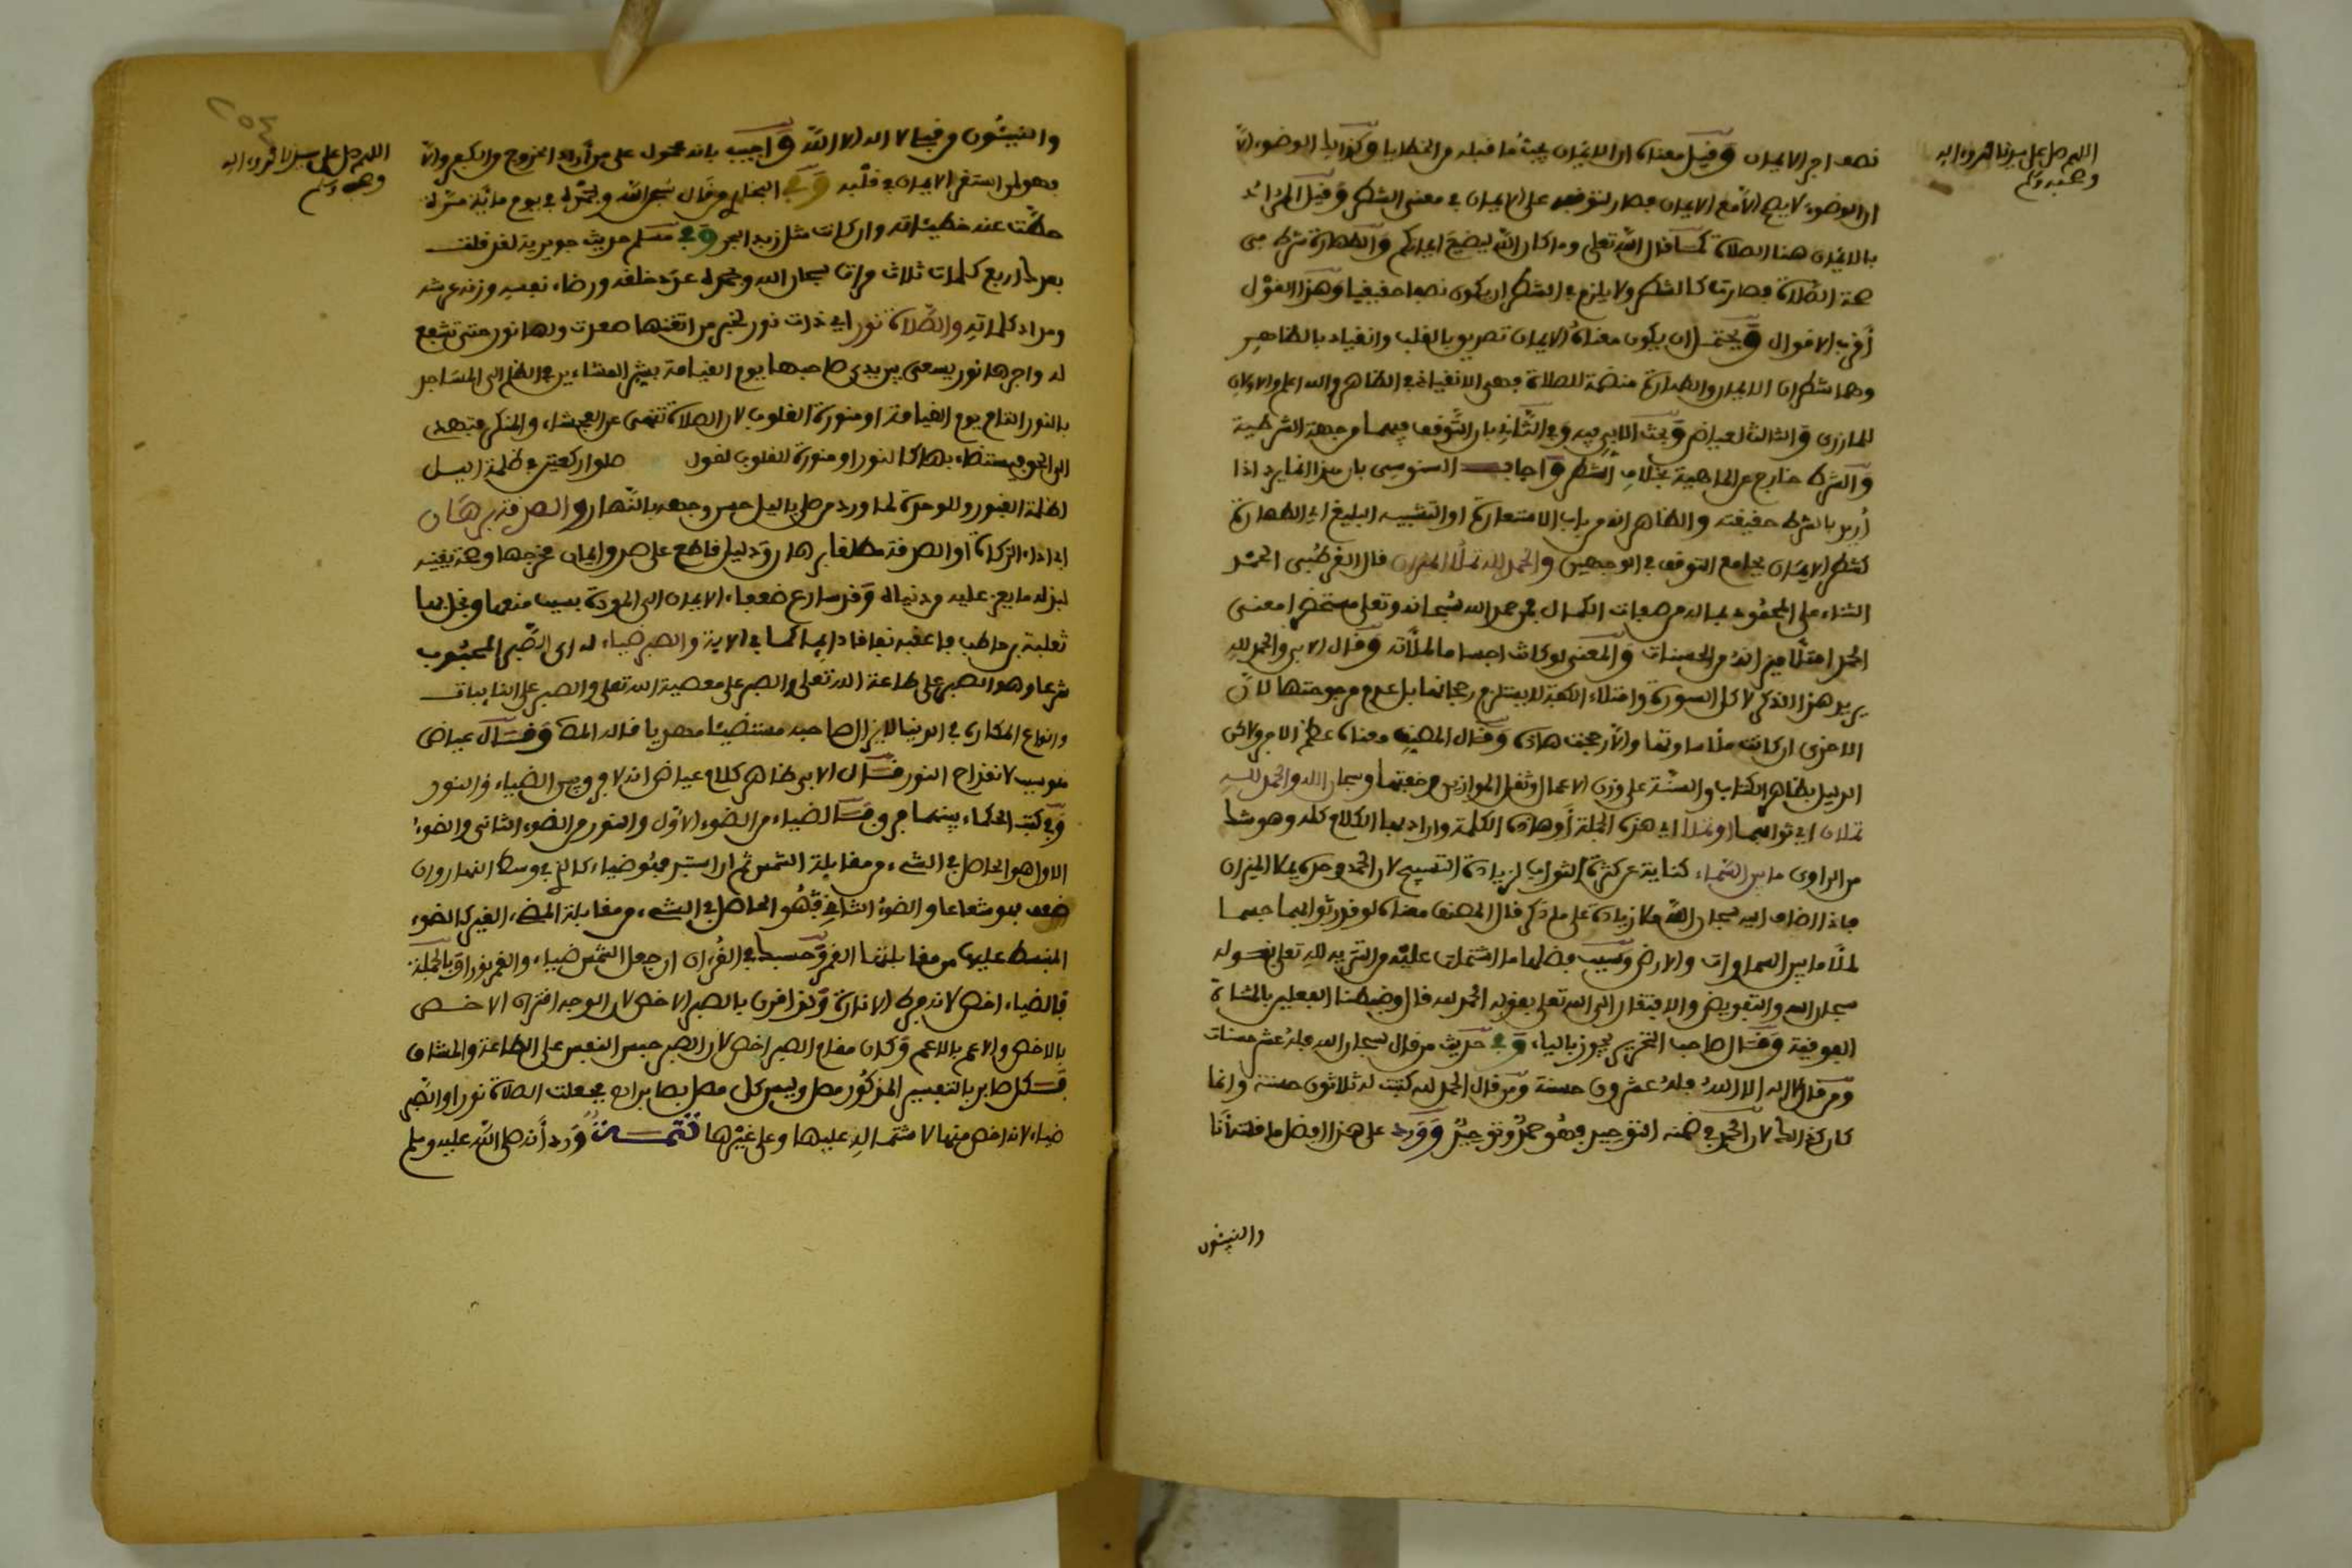 اللهم صل على سيدنا محمد وءاله
وصحبه وسلم
نصف اجر الايمان وقيل معناه ان الايمان يجب ما قبله من الخطايا وكذلك الوضوء الا
ان الوضوء لا يصح الا مع الايمان فصار لتوقفه على الايمان في معنى الشطر وقيل المراد
بالايمان هنا الصلاة كما قال الله تعلى وما كان الله ليضيع ايمانكم والطهارة شرط في
صحة الصلاة فصارت كالشطر ولا يلزم في الشطر ان يكون نصفا حقيقيا وهذا القول
أقرب الاقوال ويحتمل ان يكون معناه الايمان تصديق بالقلب وانقياد بالظاهر
وهما شطران للايمان والطهارة متضمنة للصلاة فهي الانقياد في الظاهر والله اعلم والاول
للمازري والثالث لعياض وبحث الابي فيه وفي الثاني بان التوقف فيهما من جهة الشرطية
والشرط خارج عن الماهية بخلاف الشطر واجاب السنوسي بان هذا انما يرد اذا
أريد بالشرط حقيقته والظاهر انه من باب الاستعارة او التشبيه البليغ اي الطهارة
كشطر الايمان بجامع التوقف في الوجهين والحمد لله تملأ الميزان قال القرطبي الحمد
الثناء على المحمود بما له من صفات الكمال فمن حمد الله سبحانه وتعلى مستحضرا معنى
الحمد امتلأ ميزانه من الحسنات والمعنى لو كانت اجساما لملأته وقال الابي والحمد لله
يريد هذا الذكر لا كل السورة وامتلاء الكفة لا يستلزم رجحانها بل عدم مرجوحتها لان
الاخرى ان كانت ملأ ساوتها والا رجحت هاذه وقال المصنف معناه عظم الاجر ولاكن
الدليل بظاهر الكتاب والسنة على وزن الاعمال وثقل الموازين وخفتها وسبحان الله والحمد لله
تملان اي ثوابهما او تملأ اي هذه الجملة أو هاذه الكلمة واراد بها الكلام كله وهو شك
من الراوي ما بين السماء كناية عن كثرة الثواب لزيادة التسبيح لان الحمد وحده يملأ الميزان
فاذا اضاف اليه سبحان الله ملأ زيادة على ما ذكر قال المصنف معناه لو قدر ثوابهما جسما
لملأ ما بين السماوات والارض وسبب فضلهما ما اشتملت عليه من التنزيه لله تعلى بقوله
سبحان الله والتفويض والافتقار الى الله تعلى بقوله الحمد لله قال وضبطنا الفعلين بالمثناة
الفوقية وقال صاحب التحرير يجوز بالياء وفي حديث من قال سبحان الله فله عشر حسنات
ومن قال لا اله الا الله فله عشرون حسنة ومن قال الحمد لله كتبت له ثلاثون حسنة وانما
كان كذلك لان الحمد في ضمنه التوحيد فهو حمد وتوحيد وورد على هذا افضل ما قلته أنا
والنبيئون
اللهم صل على سيدنا محمد وءاله
وصحبه وسلم
٢٥٤
والنبيئون من قبلي لا اله الا الله واجيب بانه محمول على من أراد الخروج من الكفر والا
فهو لمن استقر الايمان في قلبه وفي البخاري من قال سبحن الله وبحمده في يوم مائة مرة
حطت عنه خطيئاته وان كانت مثل زبد البحر وفي مسلم حديث جويرية لقد قلت
بعدك اربع كلمات ثلاث مرات سبحان الله وبحمده عدد خلقه ورضاء نفسه وزنة عرشه
ومداد كلماته والصلاة نور اي ذات نور لخبر من اتقنها صعدت ولها نور حتى تشفع
له واجرها نور يسعى بين يدي صاحبها يوم القيامة بشر المشائين في الظلم الى المساجد
بالنور التام يوم القيامة او منورة القلوب لان الصلاة تنهى عن الفحشاء والمنكر وتهدي
الى الحق فيستضاء بها كالنور او منورة للقلوب لقول صلوا ركعتين في ظلمة اليل
لظلمة القبور وللوجه لما ورد من صلى باليل حسن وجهه بالنهار والصدقة برهان
اي اداء الزكاة او الصدقة مطلقا برهان ودليل قاطع على صدق ايمان مخرجها وصحة يقينه
لبذله ما يعز عليه من دنياه وقد سارع ضعفاء الايمان الى الردة بسبب منعها وبخل بها
ثعلبة بن حاطب فاعقبه نفاقا دايما كما في الاية والصبر ضياء له اي الصبر المحبوب
شرعا وهو الصبر على طاعة الله تعلى والصبر على معصية الله تعلى والصبر على النايبات
وانواع المكاره في الدنيا لا يزال صاحبه مستضيئا مهديا قاله المص وقال عياض
هو سبب لانفداح النور قال الابي ظاهر كلام عياض انه لا فرق بين الضياء والنور
وفي كتب الحكماء بينهما فرق قالوا الضياء من الضوء الاول والنور من الضوء الثاني والضوء
الاول هو الحاصل في الشيء من مقابلة الشمس ثم ان استد فهو ضياء كالذي في وسط النهار وان
ضعف فهو شعاعا والضوء الثاني فهو الحاصل في الشيء من مقابلة المضيء الغير كالضوء
المنبسط علينا من مقابلتنا القمر وحسبك في القرءان ان جعل الشمس ضياء والقمر نورا وبالجملة
فالضياء اخص لانه فرط الانارة وكذا قرن بالصبر الاخص لان الوجه اقتران الاخص
بالاخص والاعم بالاعم وكان مقام الصبر اخص لان الصبر حبس النفس على الطاعة والمشاق
فكل صابر بالتفسير المذكور مصل وليس كل مصل بصابر اهـ فجعلت الصلاة نورا والصبر
ضياء لانه اخص منها لاشتماله عليها وعلى غيرها تتمة ورد أنه صلى الله عليه وسلم